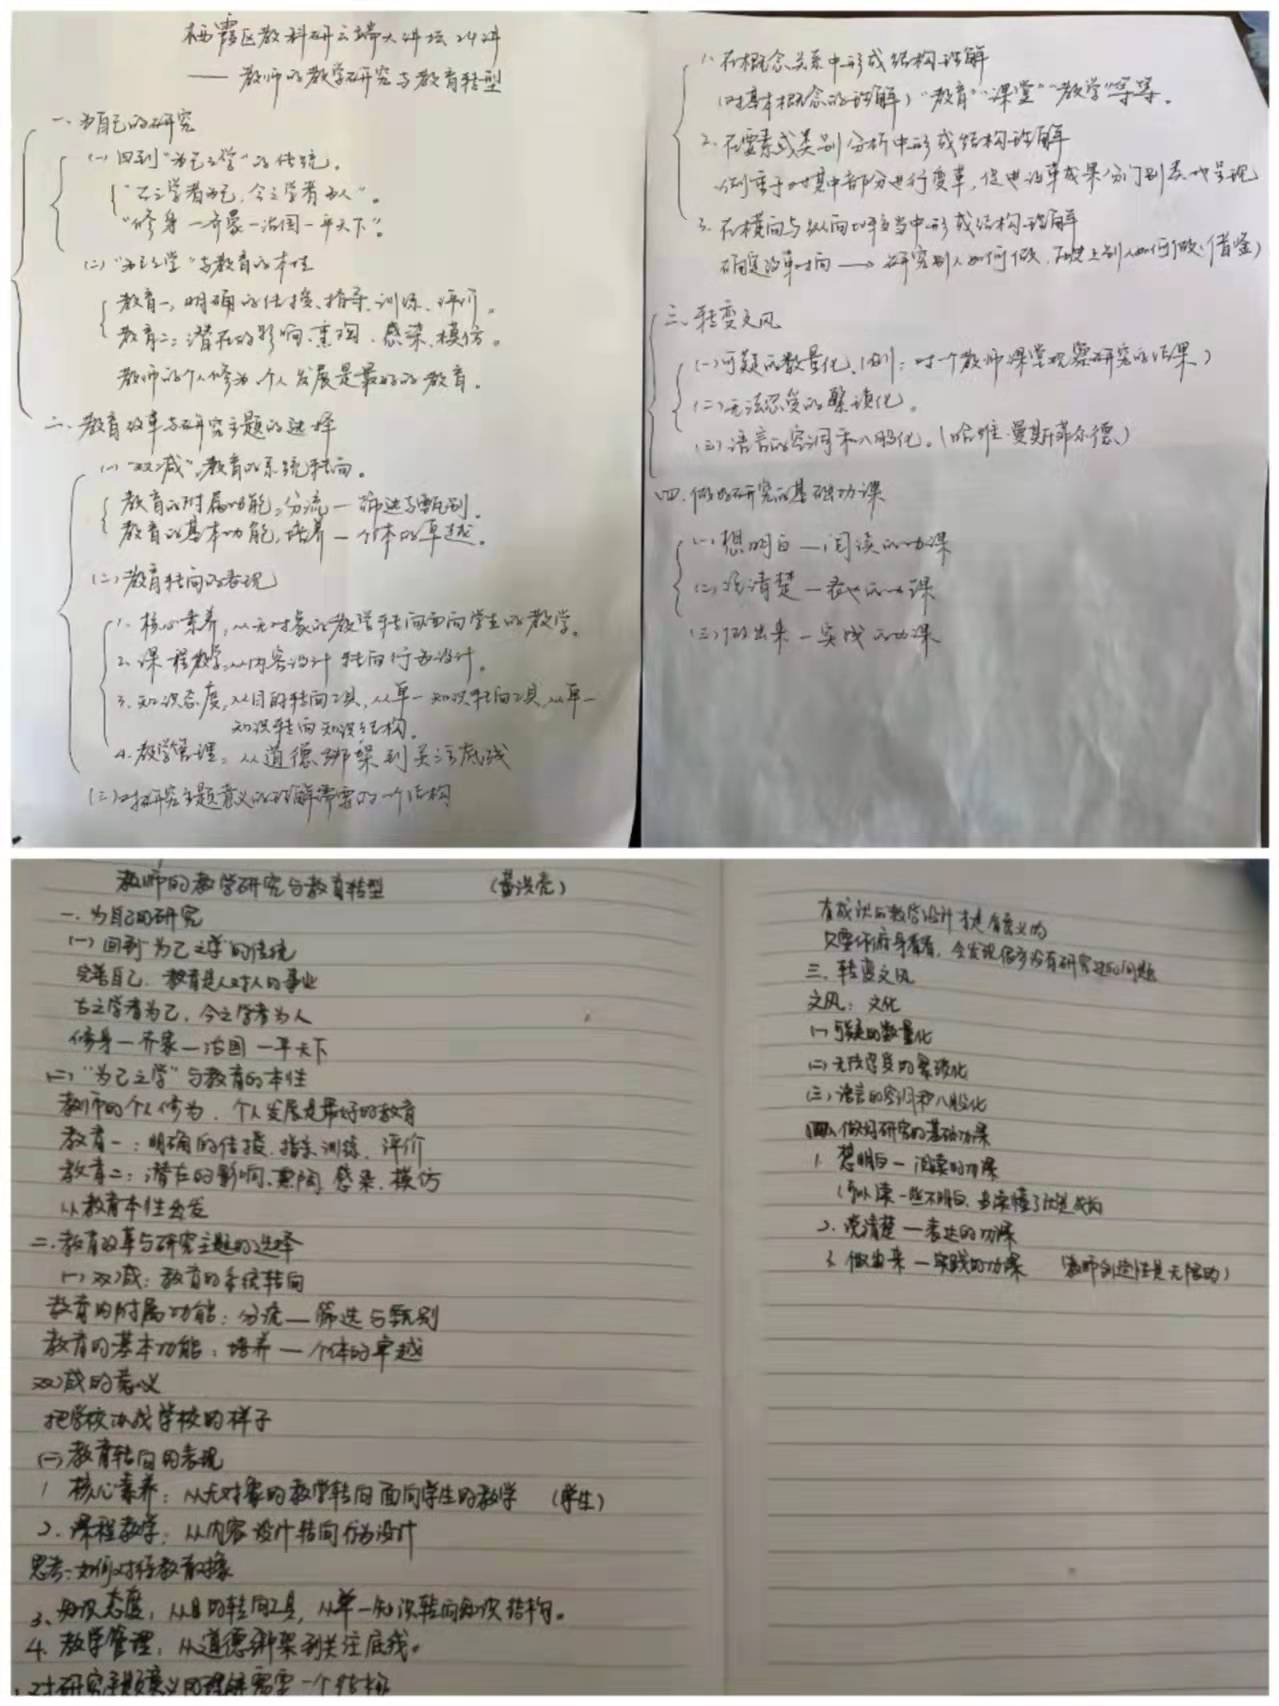 栖霞区教科研云端大讲坛24讲
——教师的教学研究与教育转型
一、为自己的研究
(一)回到“为己之学”的传统。
“古之学者为己,今之学者为人”。
“修身—齐家—治国—平天下”。
(二)“为己之学”与教育的本性
教育一:明确的传授、指导、训练、评价。
教育二:潜在的影响、熏陶、感染、模仿。
教师的个人修为、个人发展是最好的教育。
二、教育改革与研究主题的选择
(一)“双减”:教育的系统转向。
教育的附属功能:分流—筛选与甄别。
教育的基本功能:培养—个体的卓越。
(二)教育转向的表现
1.核心素养,从无对象的教学转向面向学生的教学。
2.课程教学,从内容设计转向行为设计。
3.知识态度,从目的转向工具,从单一知识转向工具,从单一
知识转向知识结构。
4.教学管理:从道德绑架到关注底线
(三)对研究主题意义的理解需要的一个结构
1.在概念关系中形成结构理解
(对基本概念的理解)“教育”“课堂”“教学”等等。
2.在要素或类别分析中形成结构理解
侧重于对其中部分进行变革,促进改革成果分门别类地呈现
3.在横向与纵向比较当中形成结构理解
确定改革时向→研究别人如何做,历史上别人如何做(借鉴)
三、转变文风
(一)可疑的数量化(例:对一个教师课堂观察研究的结果)
(二)无法忍受的繁琐化。
(三)语言的空洞和八股化。(哈维·曼斯菲尔德)
四、做好研究的基础功课
(一)想明白—阅读的功课
(二)说清楚—表达的功课
(三)做出来—实践的功课
教师的教学研究与教育转型
一、为自己的研究
(一)回到“为己之学”的传统
完善自己,教育是人对人的事业
古之学者为己,今之学者为人
修身—齐家—治国—平天下
(二)“为己之学”与教育的本性
教师的个人修为、个人发展是最好的教育
教育一:明确的传授、指导、训练、评价
教育二:潜在的影响、熏陶、感染、模仿
从教育本性出发
二、教育改革与研究主题的选择
(一)双减:教育的系统转向
教育的附属功能:分流—筛选与甄别
教育的基本功能:培养—个体的卓越
双减的意义
把学校办成学校的样子
(二)教育转向的表现
1 核心素养:从无对象的教学转向面向学生的教学 (学生)
2.课程教学:从内容设计转向行为设计
思考:如何对待教育
3.知识态度,从目的转向工具,从单一知识转向知识结构。
4.教学管理:从道德绑架到关注底线。
对研究主题意义的理解需要一个结构
教学设计才是有意义的
只要你俯身看看,会发现很多没有研究过的问题
三、转变文风
文风:文化
(一)可疑的数量化
(二)无法忍受的繁琐化
(三)语言的空洞和八股化
四、做好研究的基础功课
1.想明白—阅读的功课
(可以读一些不明白,多读懂了就是成长
2.说清楚—表达的功课
3.做出来—实践的功课 (教师创造性是无限的)